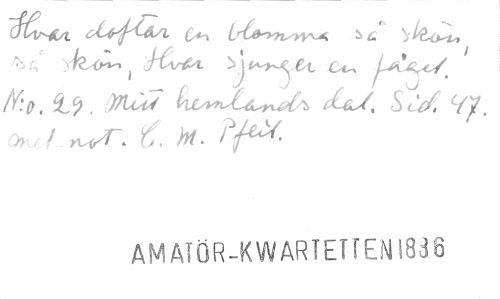 Hvar doftar en blomma så skön,
så skön, Hvar sjunger en fågel.
N:o. 29. Mitt hemlands dal. Sid. 47.
med not. C. M. Pfeil.
AMATÖR-KWARTETTEN 1836